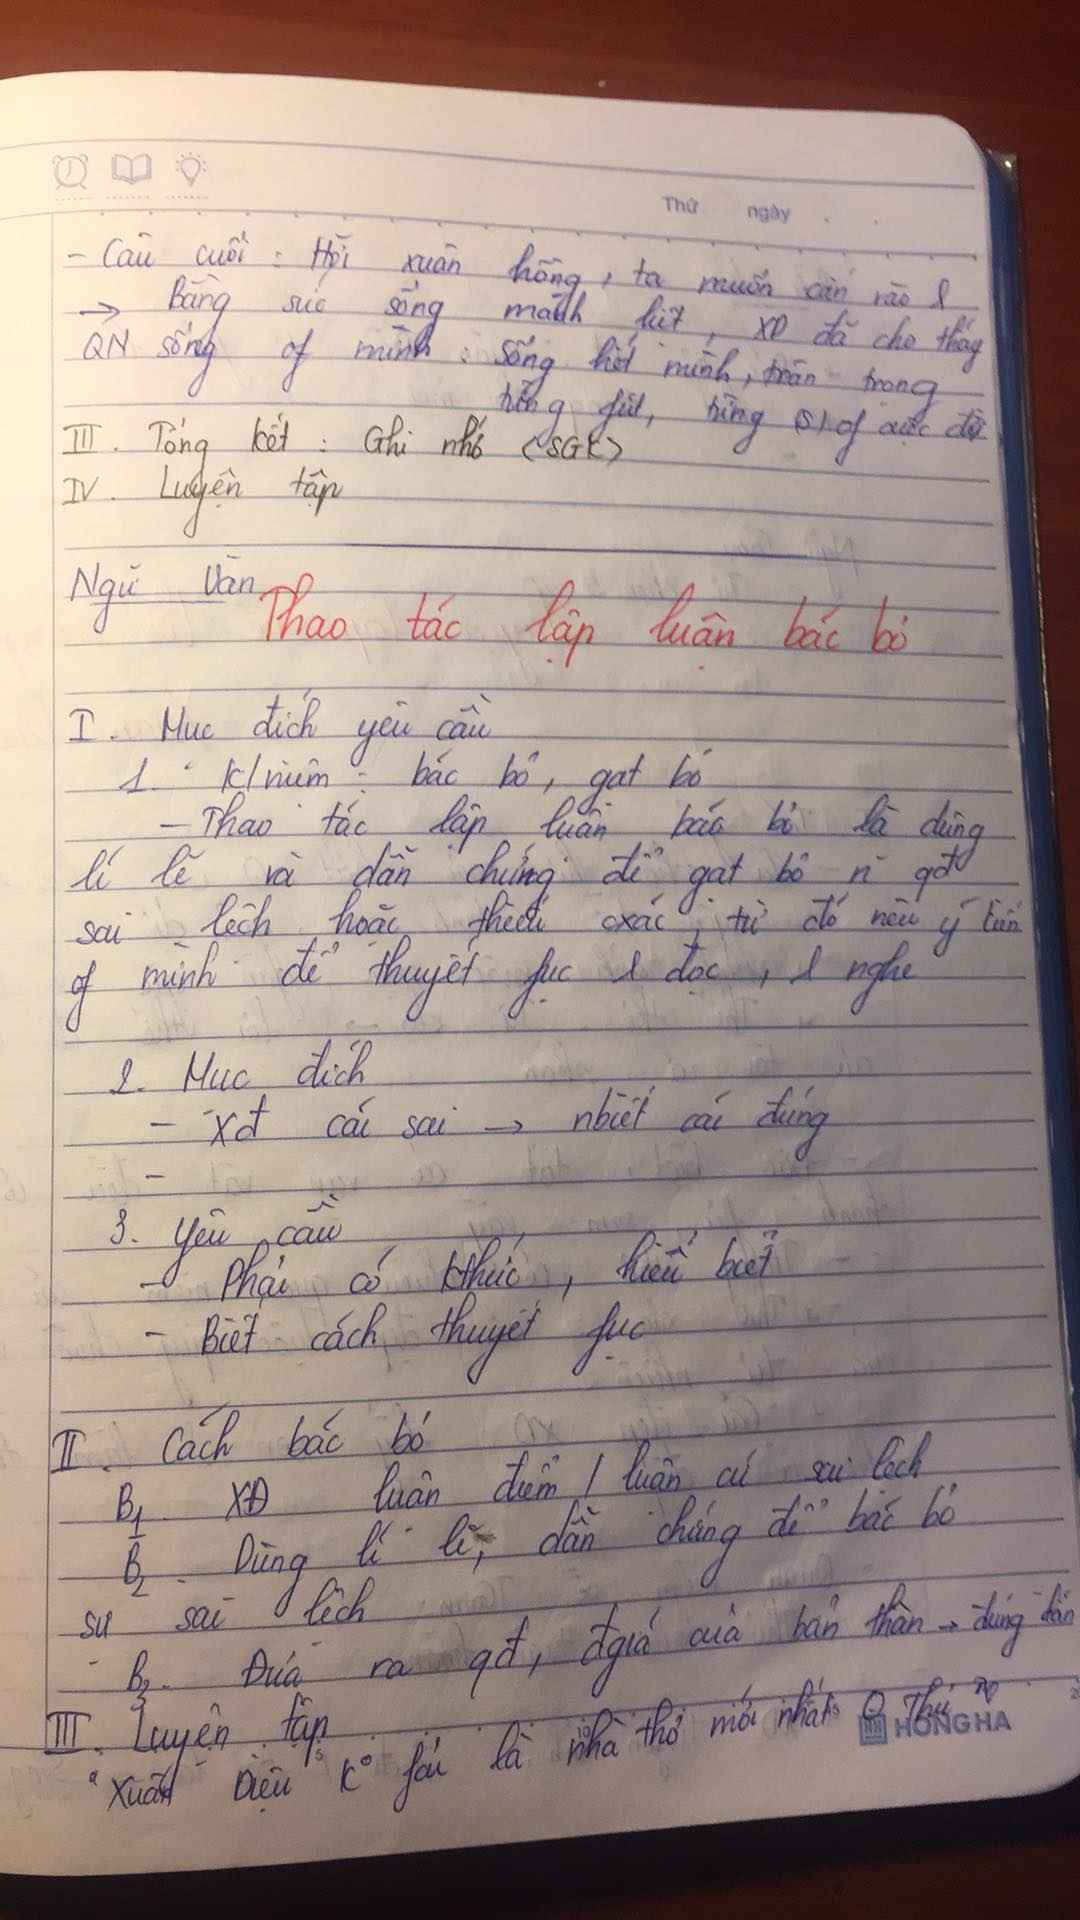 Thứ ngày
- Câu cuối : Hỡi xuân hồng, ta muốn cắn vào
→ Bằng sức sống mãnh liệt, XD đã cho thấy
QN sống of mình : sống hết mình, trân trọng
từng fút, từng (s) of cuộc đời
III. Tổng kết : Ghi nhớ (SGK)
IV. Luyện tập
Ngữ Văn
Thao tác lập luận bác bỏ
I. Mục đích yêu cầu
1. K/niệm : bác bỏ, gạt bỏ
- Thao tác lập luận bác bỏ là dùng
lí lẽ và dẫn chứng để gạt bỏ n qđ
sai lệch hoặc thiếu cxác, từ đó nêu ý kiến
of mình để thuyết fục đọc, nghe
2. Mục đích
- Xđ cái sai → nbiết cái đúng
-
3. Yêu cầu
- Phải có kthức, hiểu biết
- Biết cách thuyết fục
II. Cách bác bỏ
B1. XĐ luận điểm / luận cứ sai lệch
B2. Dùng lí lẽ, dẫn chứng để bác bỏ
sự sai lệch
- B3. Đưa ra qđ, đgiá của bản thân → đúng đắn
III. Luyện tập
"Xuân Diệu K° fải là nhà thơ mới nhất
HONG HA